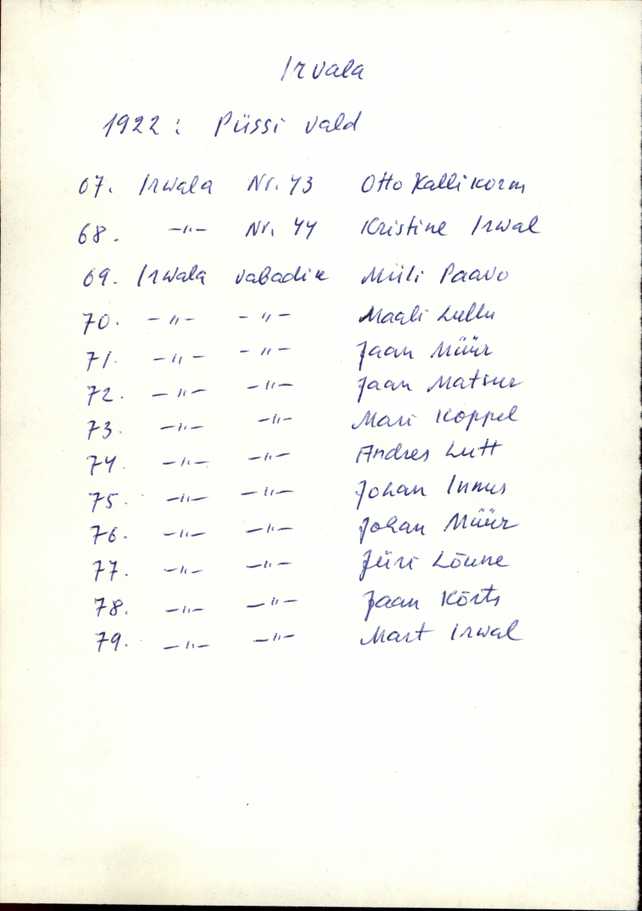 Irvala
1922: Püssi vald
67. Irwala Nr. 43 Otto Kallikorm
68. -"- Nr. 44 Kristine Irwal
69. Irwala vabadik Miili Paavo
70. -"- -"- Maali Lullu
71. -"- -"- Jaan Müür
72. -"- -"- Jaan Matsur
73. -"- -"- Mari Koppel
74. -"- -"- Andres Lutt
75. -"- -"- Johan Innus
76. -"- -"- Johan Müür
77. -"- -"- Jüri Lõune
78. -"- -"- Jaan Kõrts
79. -"- -"- Mart Irwal